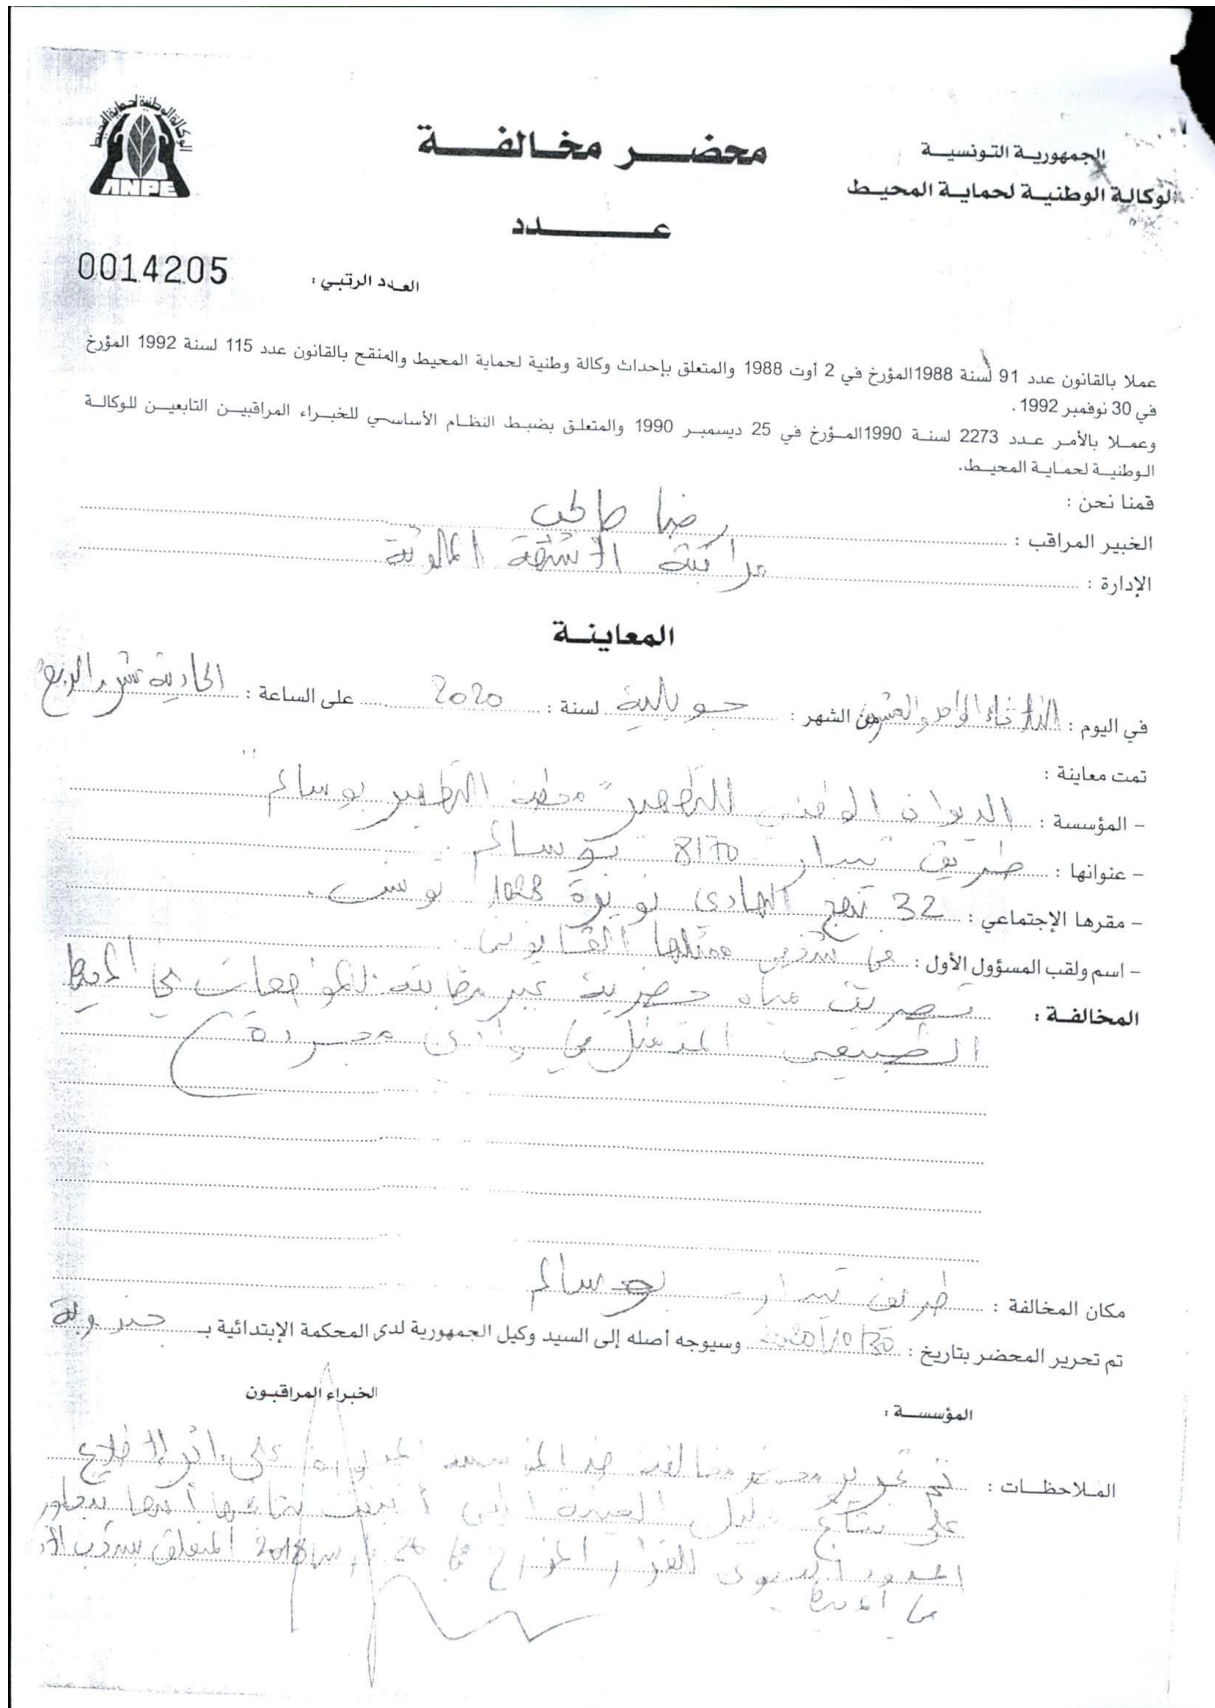 الوكالة الوطنية لحماية المحيط
ANPE
الجمهورية التونسية
الوكالة الوطنية لحماية المحيط
محضر مخالفة
عدد
العدد الرتبي : 0014205
عملا بالقانون عدد 91 لسنة 1988 المؤرخ في 2 أوت 1988 والمتعلق بإحداث وكالة وطنية لحماية المحيط والمنقح بالقانون عدد 115 لسنة 1992 المؤرخ
في 30 نوفمبر 1992 .
وعملا بالأمر عدد 2273 لسنة 1990 المؤرخ في 25 ديسمبر 1990 والمتعلق بضبط النظام الأساسي للخبراء المراقبين التابعين للوكالة
الوطنية لحماية المحيط.
قمنا نحن :
الخبير المراقب : رضا
الإدارة : مراقبة الأنشطة الملوثة
المعاينة
في اليوم : الثلاثاء الواحد والعشرون من الشهر : جويلية لسنة : 2020 على الساعة : الحادية عشر والربع
تمت معاينة :
– المؤسسة : الديوان الوطني للتطهير "محطة التطهير بوسالم"
– عنوانها : طريق تيبار 8170 بوسالم
– مقرها الإجتماعي : 32 نهج الهادي نويرة تونس
– اسم ولقب المسؤول الأول : في شخص ممثلها القانوني
المخالفة : تصريف مياه غير مطابقة للمواصفات في المحيط
الطبيعي المتمثل في وادي مجردة
مكان المخالفة : طريق تيبار بوسالم
تم تحرير المحضر بتاريخ : وسيوجه أصله إلى السيد وكيل الجمهورية لدى المحكمة الإبتدائية بـ جندوبة
المؤسسة :
الخبراء المراقبون
الملاحظات : تم تحرير محضر مخالفة ضد المؤسسة على إثر الإطلاع
على نتائج تحاليل العينة التي أثبتت نتائجها أنها تتجاوز
الحدود القصوى للقرار المؤرخ في 26 مارس 2018 المتعلق
في المحيط